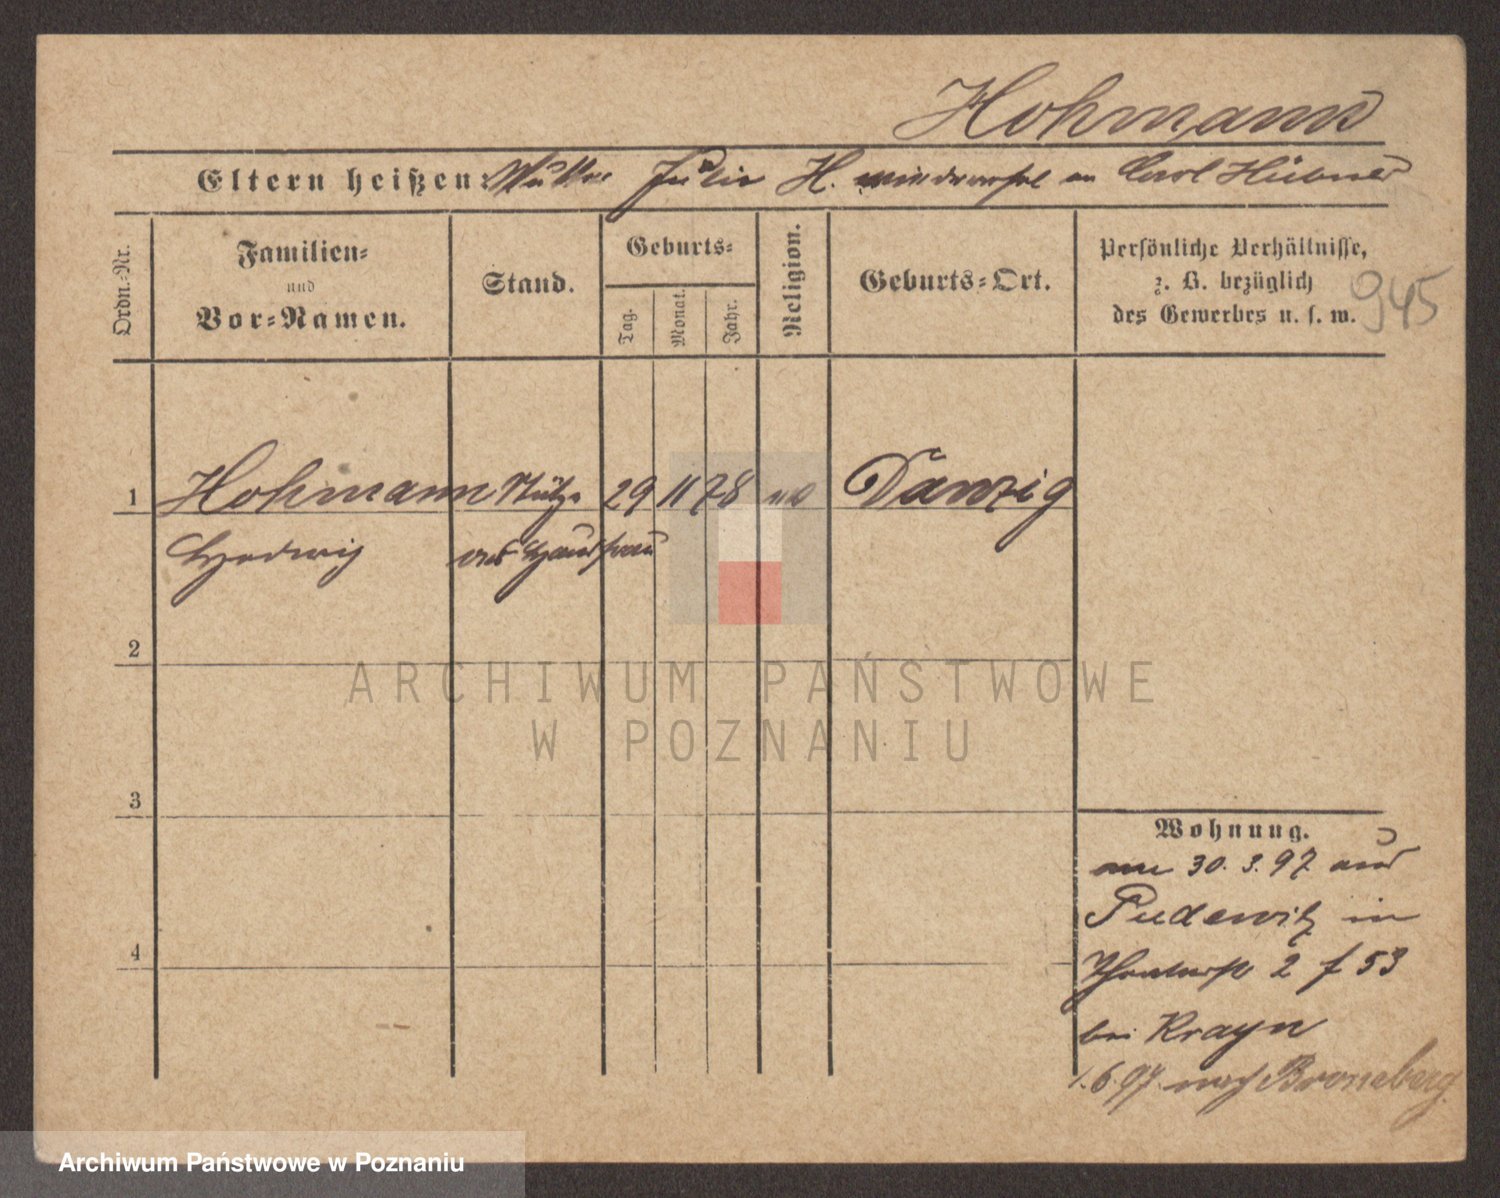 Hohmann
Eltern heißen: Mutter Julie H. wiederverehel an Carl Hübner
Ordn.-Nr.
Familien-
und
Vor-Namen.
Stand.
Geburts-
Tag.
Monat.
Jahr.
Religion.
Geburts-Ort.
Persönliche Verhältnisse,
z. B. bezüglich
des Gewerbes u. s. w.
945
1 Hohmann Stütze 29 11 78 ev Danzig
Hedwig der Hausfrau
2
3
4
Wohnung.
am 30. 3. 97 aus
Pudewitz in
Theaterstr 2 f 53
bei Krayn
1. 6. 97. nach Bromberg
ARCHIWUM PAŃSTWOWE
W POZNANIU
Archiwum Państwowe w Poznaniu